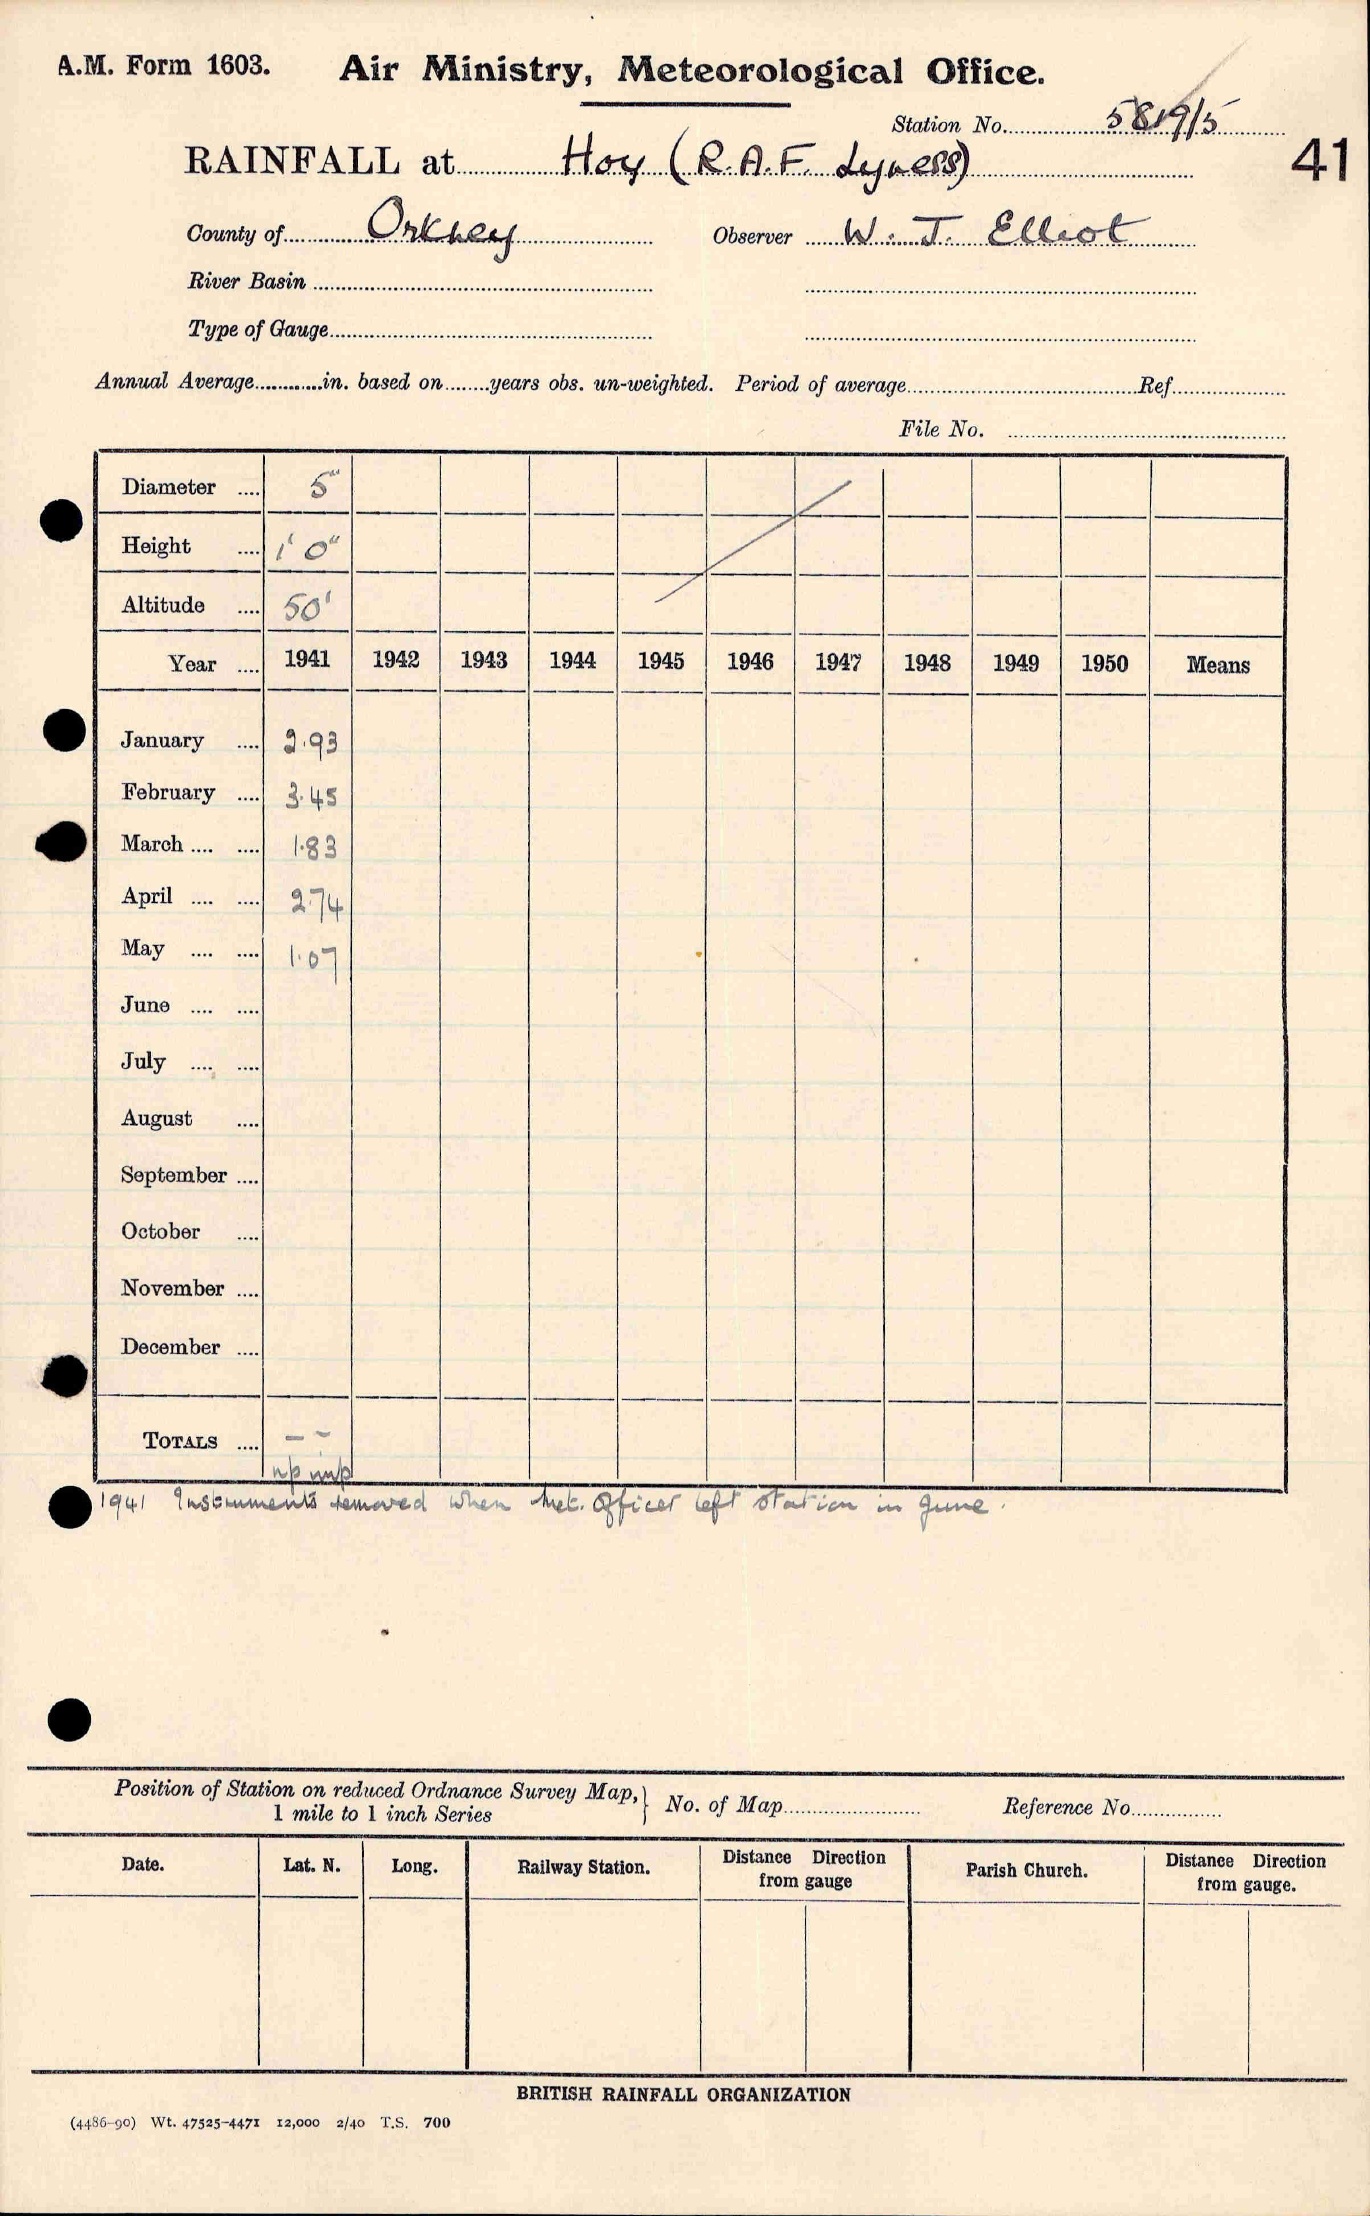 A.M. Form 1603. Air Ministry, Meteorological Office.
Station No. 5819/5
41
RAINFALL at Hoy (R.A.F. Lyness)
County of Orkney Observer W. J. Elliot
River Basin
Type of Gauge
Annual Average in. based on years obs. un-weighted. Period of average Ref.
File No.
Diameter .... 5"
Height .... 1' 0"
Altitude .... 50'
Year .... 1941 1942 1943 1944 1945 1946 1947 1948 1949 1950 Means
January .... 2.93
February .... 3.45
March .... .... 1.83
April .... .... 2.74
May .... .... 1.07
June .... ....
July .... ....
August ....
September ....
October ....
November ....
December ....
TOTALS .... – –
np mp
1941 Instruments removed when Met. Officer left station in June.
Position of Station on reduced Ordnance Survey Map, } No. of Map Reference No.
1 mile to 1 inch Series
Date. Lat. N. Long. Railway Station. Distance Direction from gauge Parish Church. Distance Direction from gauge.
BRITISH RAINFALL ORGANIZATION
(4486–90) Wt. 47525–4471 12,000 2/40 T.S. 700